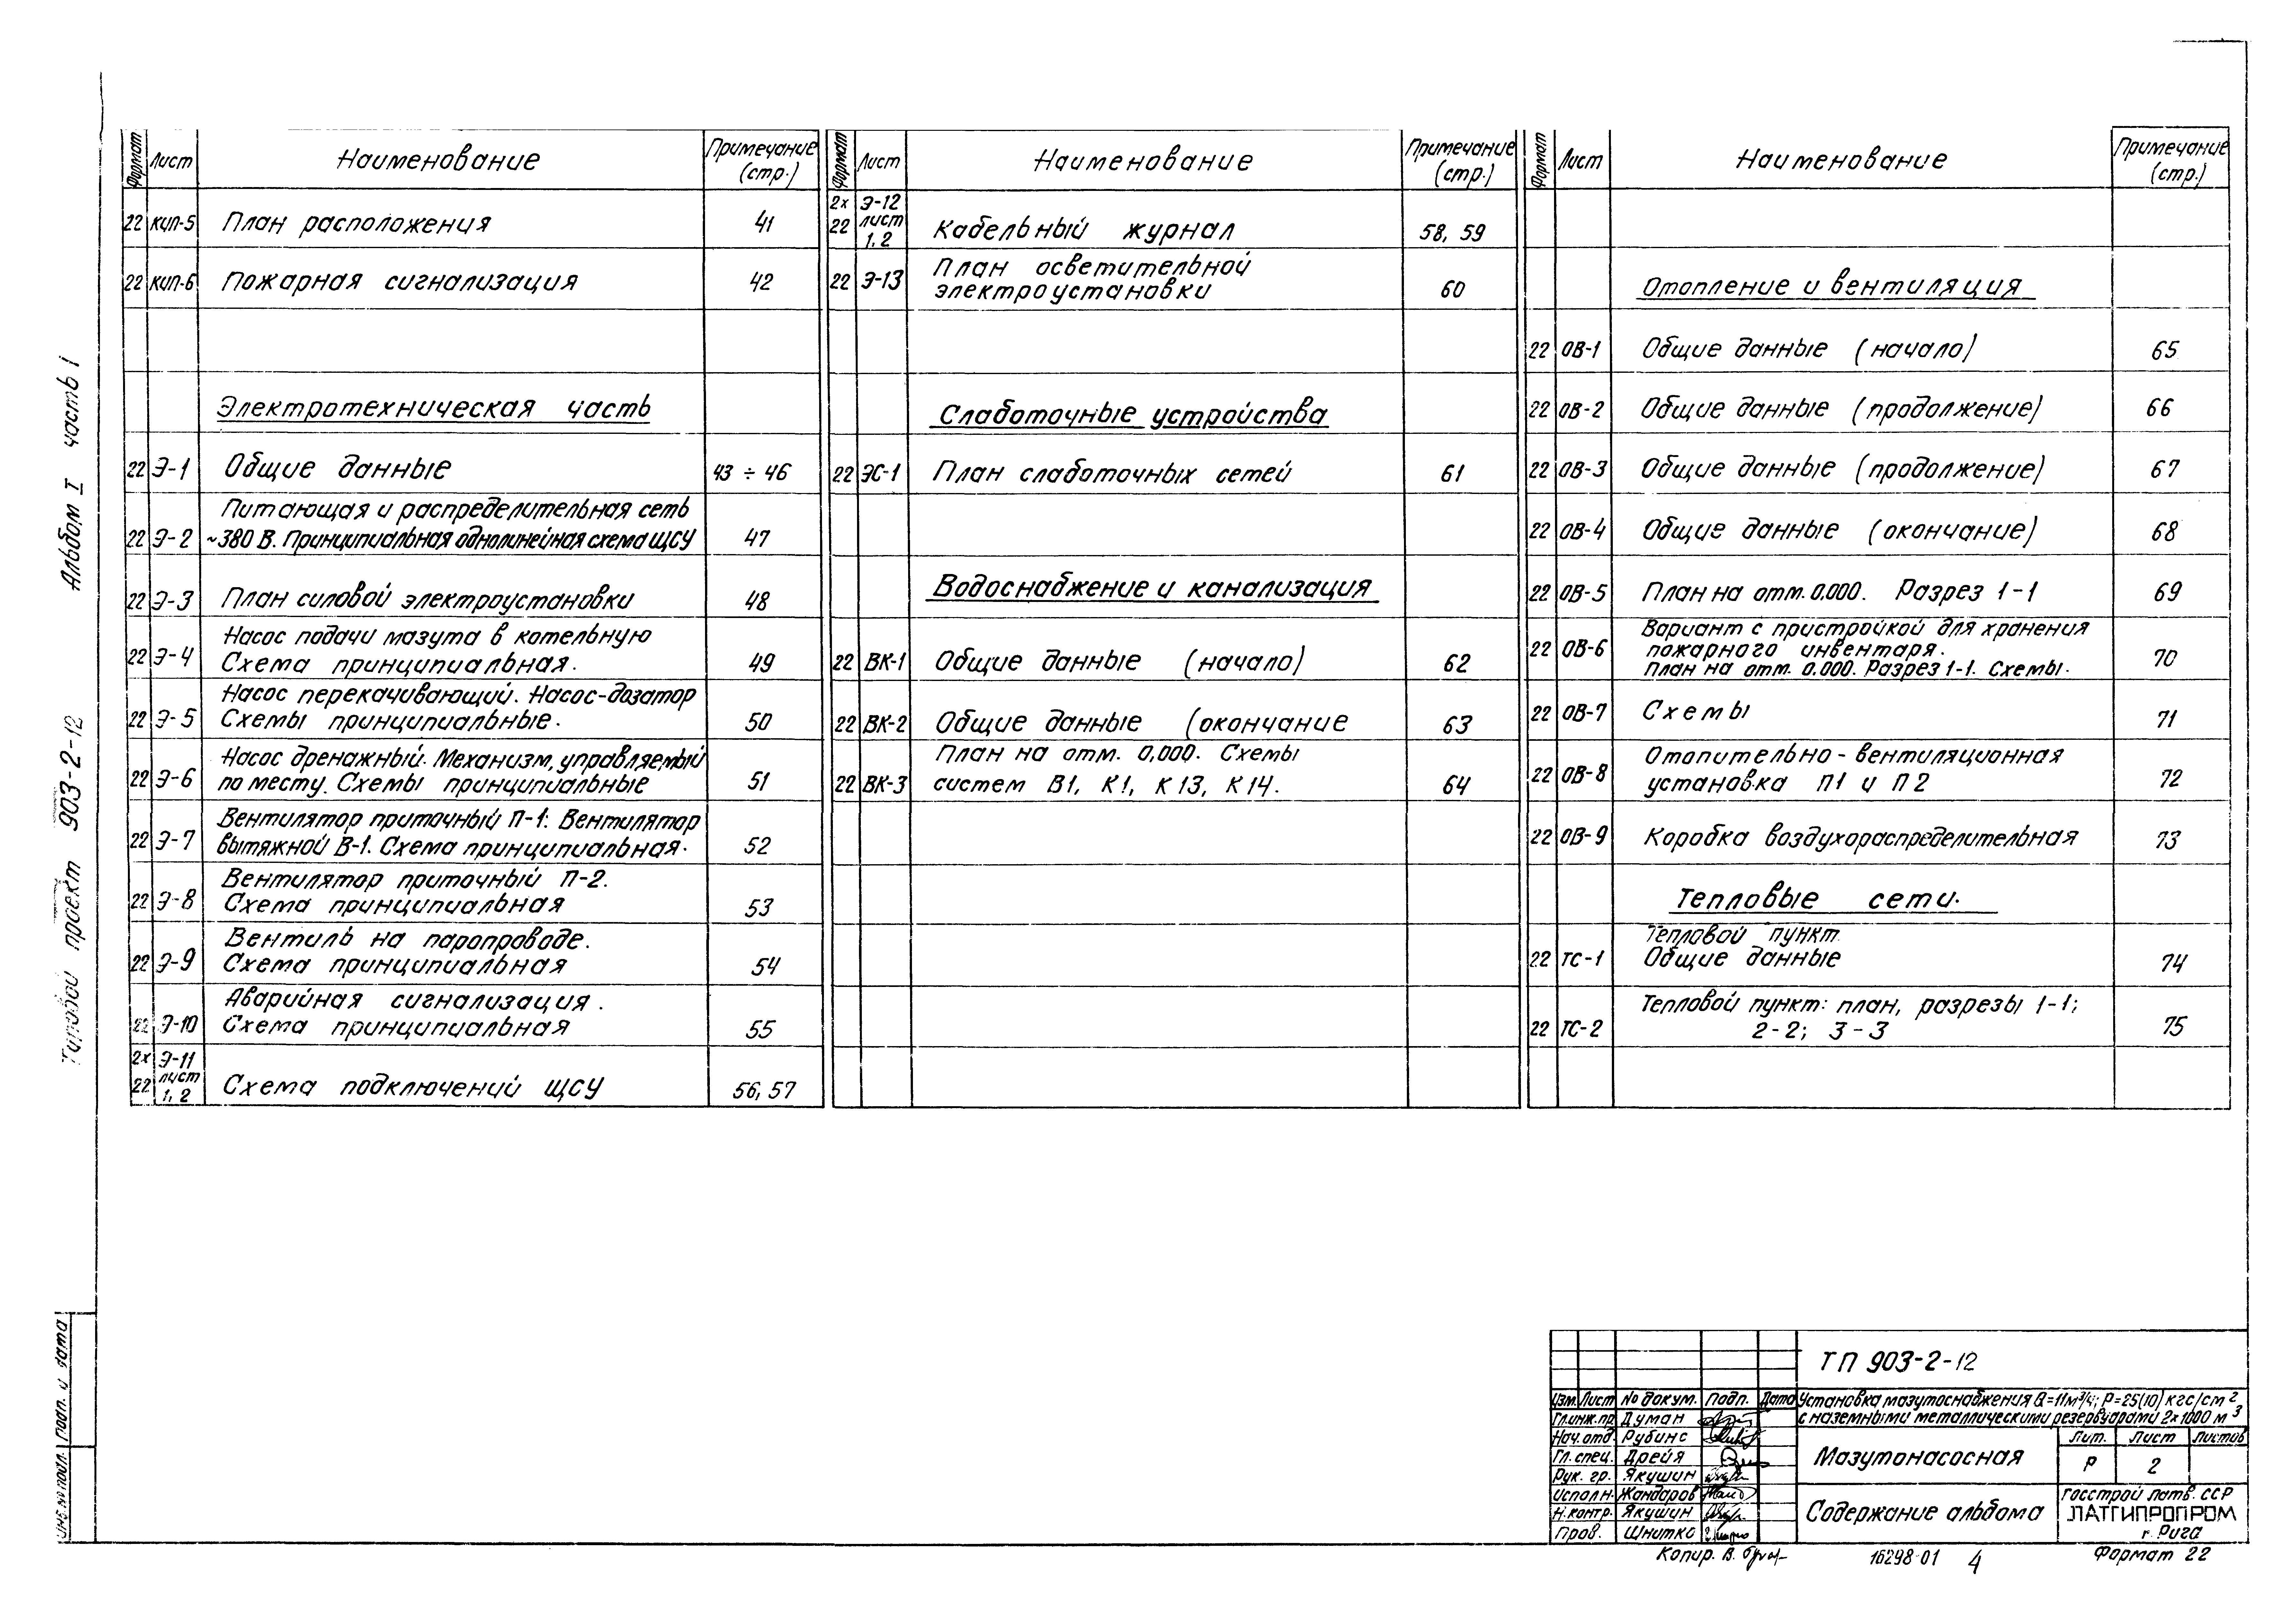 Формат Лист Наименование Примечание (стр.)
22 КИП-5 План расположения 41
22 КИП-6 Пожарная сигнализация 42
Электротехническая часть
22 Э-1 Общие данные 43 ÷ 46
Питающая и распределительная сеть
22 Э-2 ~380 В. Принципиальная однолинейная схема ЩСУ 47
22 Э-3 План силовой электроустановки 48
Насос подачи мазута в котельную
22 Э-4 Схема принципиальная. 49
Насос перекачивающий. Насос-дозатор
22 Э-5 Схемы принципиальные. 50
Насос дренажный. Механизм, управляемый
22 Э-6 по месту. Схемы принципиальные 51
Вентилятор приточный П-1. Вентилятор
22 Э-7 вытяжной В-1. Схема принципиальная. 52
Вентилятор приточный П-2.
22 Э-8 Схема принципиальная 53
Вентиль на паропроводе.
22 Э-9 Схема принципиальная 54
Аварийная сигнализация.
22 Э-10 Схема принципиальная 55
2х Э-11
22 лист 1, 2 Схема подключений ЩСУ 56, 57
Формат Лист Наименование Примечание (стр.)
2х Э-12
22 лист 1, 2 Кабельный журнал 58, 59
План осветительной
22 Э-13 электроустановки 60
Слаботочные устройства
22 ЭС-1 План слаботочных сетей 61
Водоснабжение и канализация
22 ВК-1 Общие данные (начало) 62
22 ВК-2 Общие данные (окончание 63
План на отм. 0,000. Схемы
22 ВК-3 систем В1, К1, К13, К14. 64
Формат Лист Наименование Примечание (стр.)
Отопление и вентиляция
22 ОВ-1 Общие данные (начало) 65
22 ОВ-2 Общие данные (продолжение) 66
22 ОВ-3 Общие данные (продолжение) 67
22 ОВ-4 Общие данные (окончание) 68
22 ОВ-5 План на отм. 0.000. Разрез 1-1 69
Вариант с пристройкой для хранения
22 ОВ-6 пожарного инвентаря. 70
План на отм. 0.000. Разрез 1-1. Схемы.
22 ОВ-7 Схемы 71
Отопительно-вентиляционная
22 ОВ-8 установка П1 и П2 72
22 ОВ-9 Коробка воздухораспределительная 73
Тепловые сети.
Тепловой пункт.
22 ТС-1 Общие данные 74
Тепловой пункт: план, разрезы 1-1;
22 ТС-2 2-2; 3-3 75
Типовой проект 903-2-12 Альбом I часть I
Инв. № подл. Подп. и дата
ТП 903-2-12
Изм. Лист № докум. Подп. Дата
Установка мазутоснабжения Q=11м³/ч; Р=25(10) кгс/см²
с наземными металлическими резервуарами 2х1000 м³
Гл.инж.пр. Думан
Нач. отд. Рубинс
Гл. спец. Дрейя
Рук. гр. Якушин
Исполн. Жандаров
Н.контр. Якушин
Пров. Шнитко
Мазутонасосная
Лит. Лист Листов
Р 2
Содержание альбома
Госстрой Латв. ССР
ЛАТГИПРОПРОМ
г. Рига
Копир. В.
16298-01 4
Формат 22